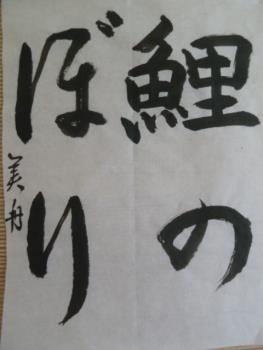 鯉の
ぼり
美舟